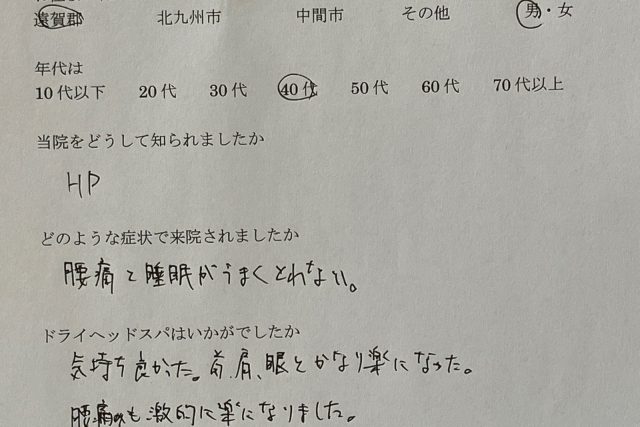 遠賀郡 北九州市 中間市 その他 男・女
年代は
10代以下 20代 30代 40代 50代 60代 70代以上
当院をどうして知られましたか
HP
どのような症状で来院されましたか
腰痛と睡眠がうまくとれない。
ドライヘッドスパはいかがでしたか
気持ち良かった。首、肩、眼とかなり楽になった。
腰痛も激的に楽になりました。